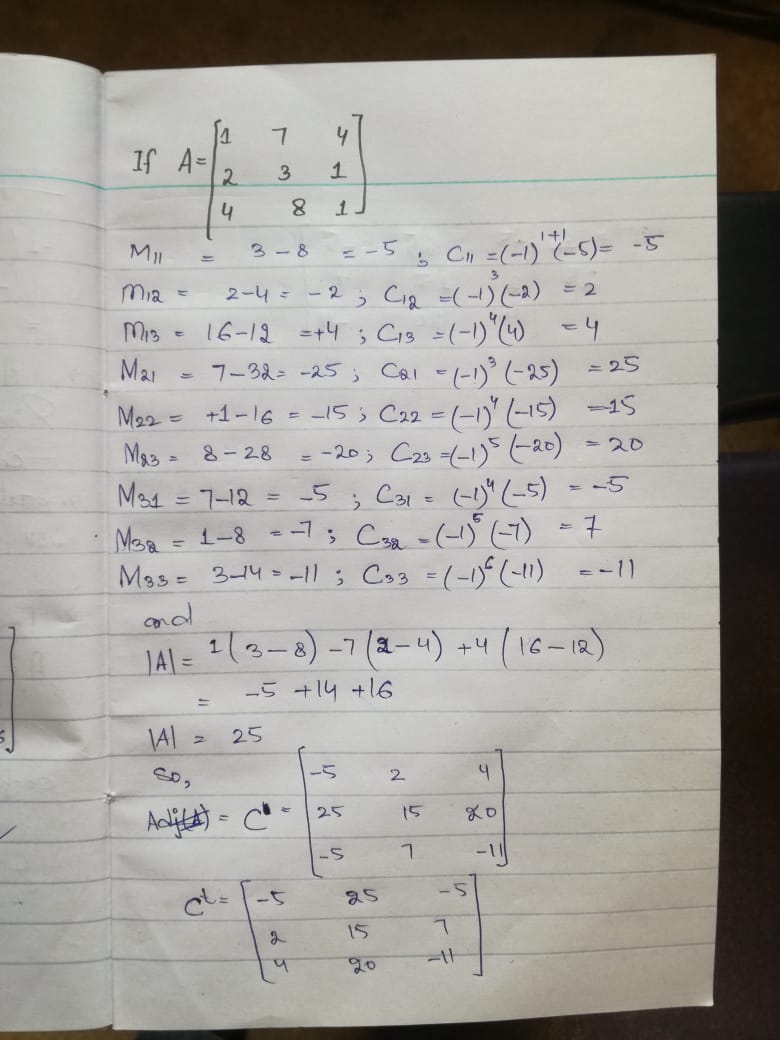 If A= [1 7 4
2 3 1
4 8 1]
M11 = 3-8 = -5 ; C11 =(-1)^1+1 (-5)= -5
M12 = 2-4= -2 ; C12 =(-1)^3 (-2) = 2
M13 = 16-12 =+4 ; C13 =(-1)^4 (4) = 4
M21 = 7-32= -25 ; C21 =(-1)^3 (-25) = 25
M22 = +1-16 = -15 ; C22 =(-1)^4 (-15) =-15
M23 = 8-28 = -20 ; C23 =(-1)^5 (-20) = 20
M31 = 7-12 = -5 ; C31 = (-1)^4 (-5) = -5
M32 = 1-8 = -7 ; C32 =(-1)^5 (-7) = 7
M33 = 3-14 = -11 ; C33 =(-1)^6 (-11) = -11
and
|A| = 1(3-8) -7(2-4) +4(16-12)
= -5 +14 +16
|A| = 25
So,
Adj = C = [-5 2 4
25 15 20
-5 7 -11]
C^t = [-5 25 -5
2 15 7
4 20 -11]